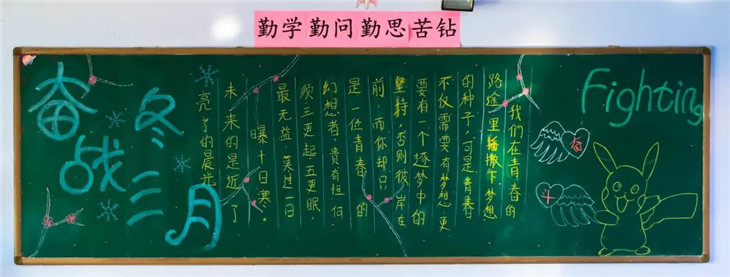 勤学勤问勤思苦钻
奋战
冬三月
Fighting
我们在青春的
路途里播撒下梦想
的种子,可是青春
不仅需要有梦想更
要有一个逐梦中的
坚持,否则彼岸在
前,而你却只
是一位青春的
幻想者,贵有恒,何
须三更起五更眠,
最无益 莫过一日
曝十日寒。
未来的是近了
亮了的晨光